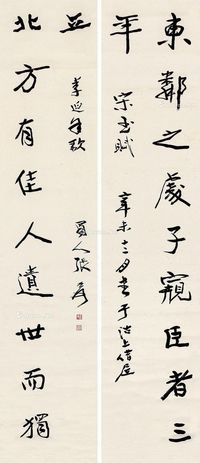 東鄰之處子窺臣者三
年
宋玉賦 辛未十二月書于滬上借居
立
李延年歌 蜀人張爰
北方有佳人遺世而獨